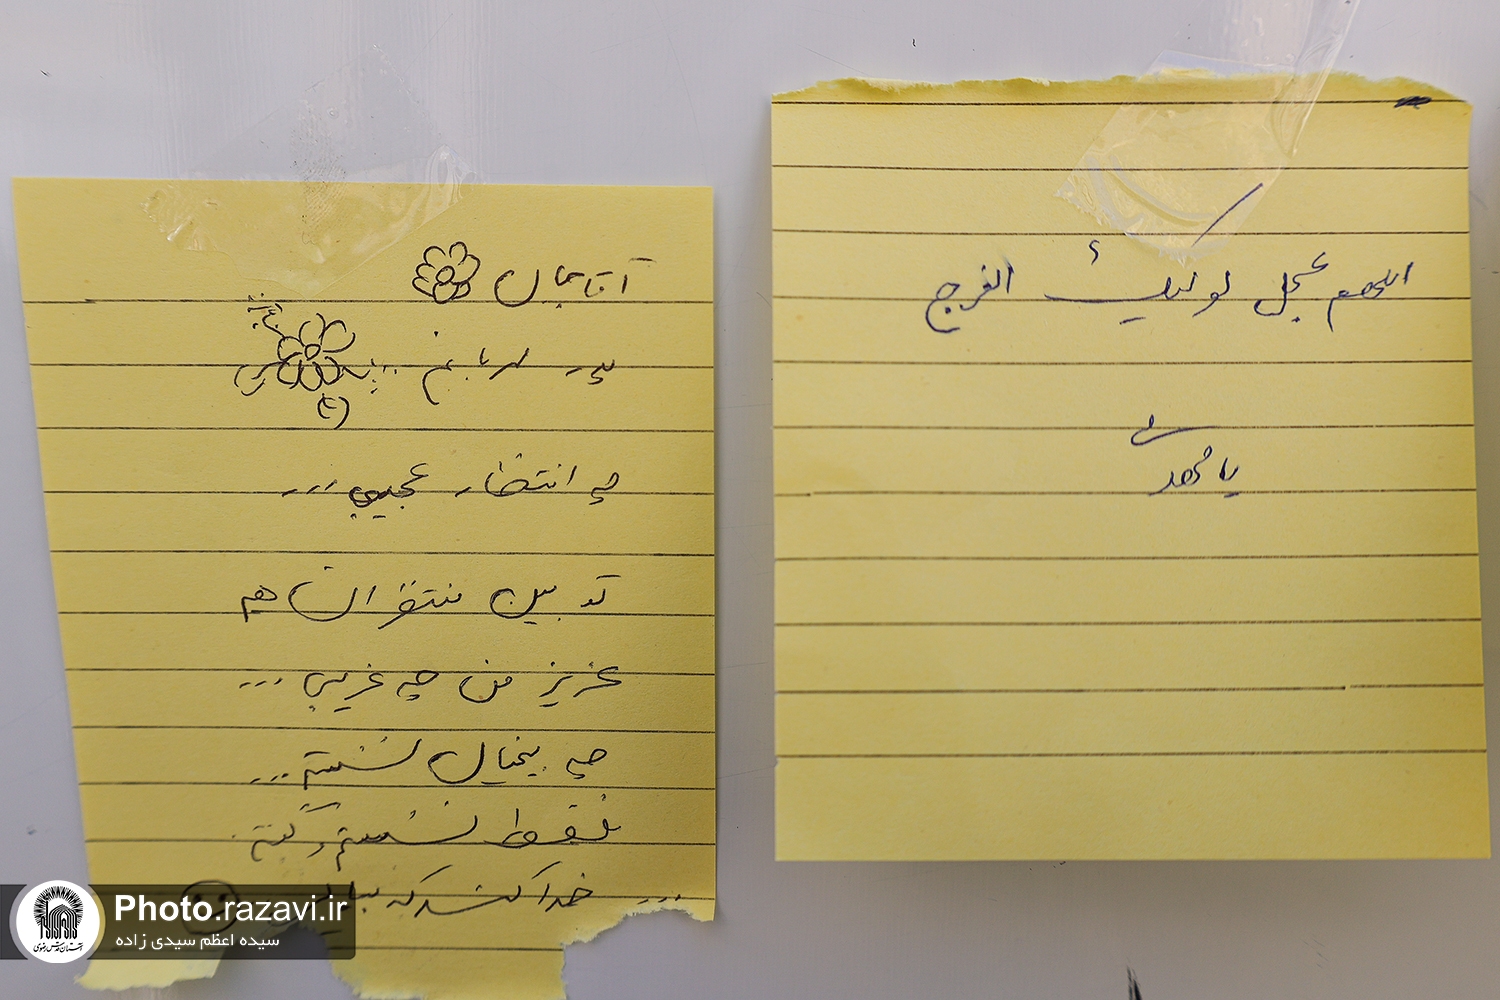 اللهم عجل لولیک الفرج
یا مهدی
آقا جان
پدر مهربانم ..
چه انتظار عجیبی ...
تو بین منتظران هم
عزیز من چه غریبی ...
چه بیخیال نشستیم ...
فقط نشستیم و گفتیم
خدا کند که بیایی ...
Photo.razavi.ir
سیده اعظم سیدی زاده
آستان قدس رضوی